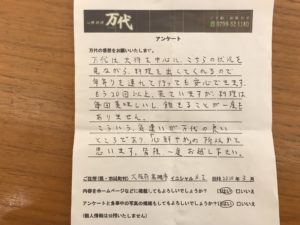 万代
☎ 0799-52-1140
アンケート
万代の感想をお願いいたします。
万代は大将を中心に、こちらの状況を
見ながら、料理を出してくれるので
年寄りを連れて行っても安心できます。
もう20回以上、見ていますが、料理は
毎回美味しいし飽きることが一度も
ありません。
こういう気遣いが万代の良い
ところであり、心鮮やかの所以かと
思います。皆様、一度お越し下さい。
ご住所(県・市町村別) 大阪府高槻市 イニシャル
内容をホームページなどに掲載してもよろしいでしょうか? はい □いいえ
アンケートと食事中の写真の掲載もしてもよろしいでしょうか? はい □いいえ
(個人情報は公開いたしません)